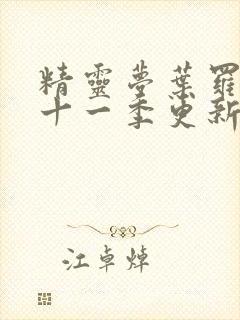 精靈夢葉羅
十一季更新
江卓焯